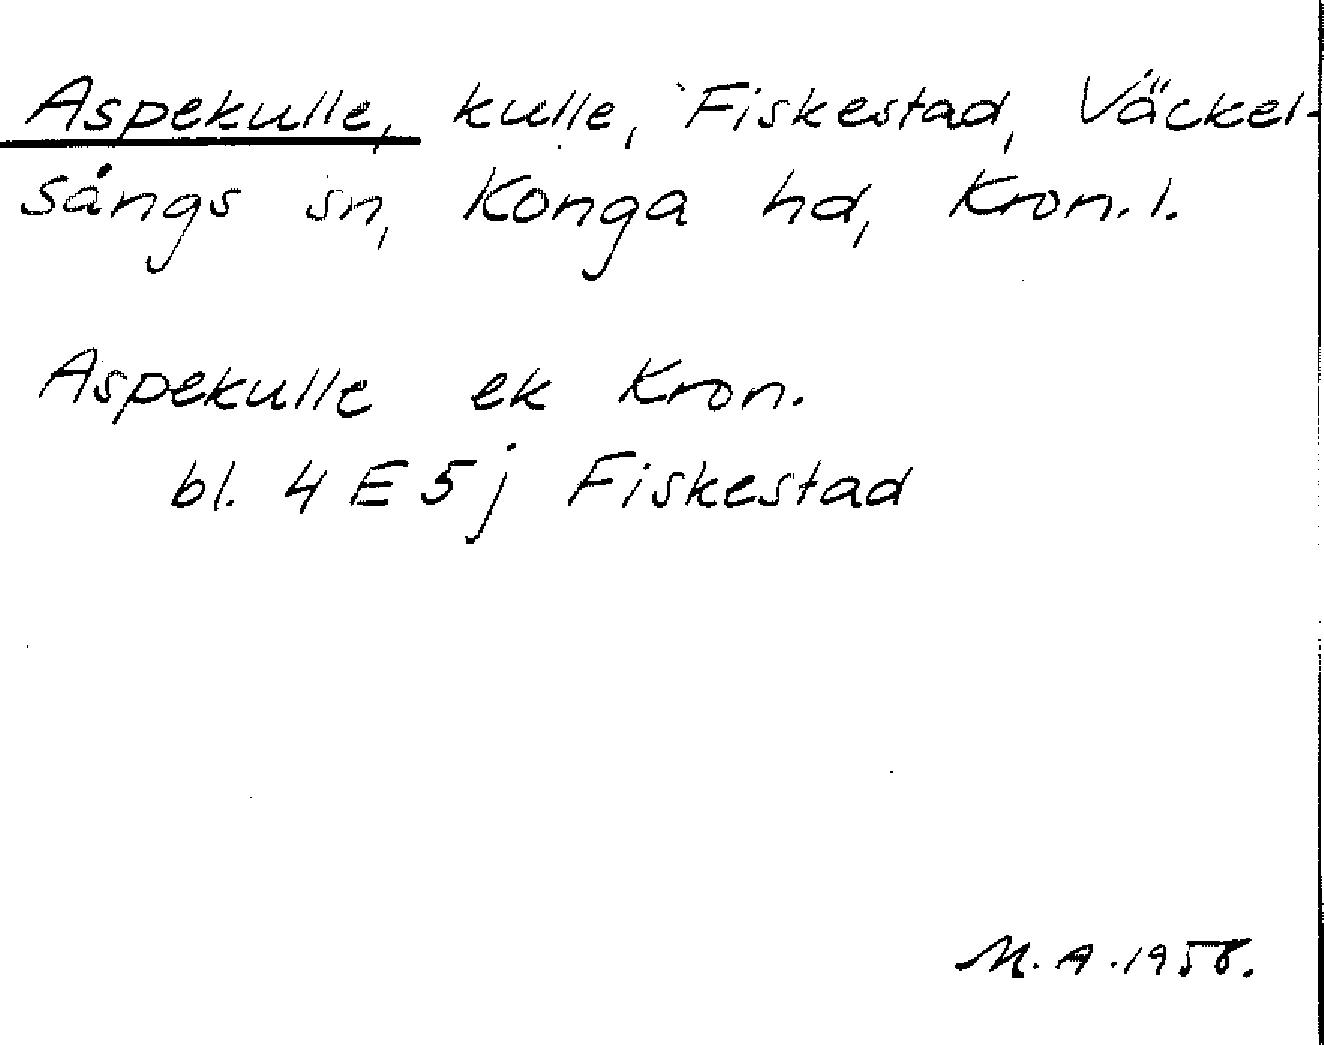 Aspekulle, kulle, Fiskestad, Väckel-
sångs sn, Konga hd, Kron. l.
Aspekulle ek Kron.
bl. 4 E 5 j Fiskestad
M. A. 1958.